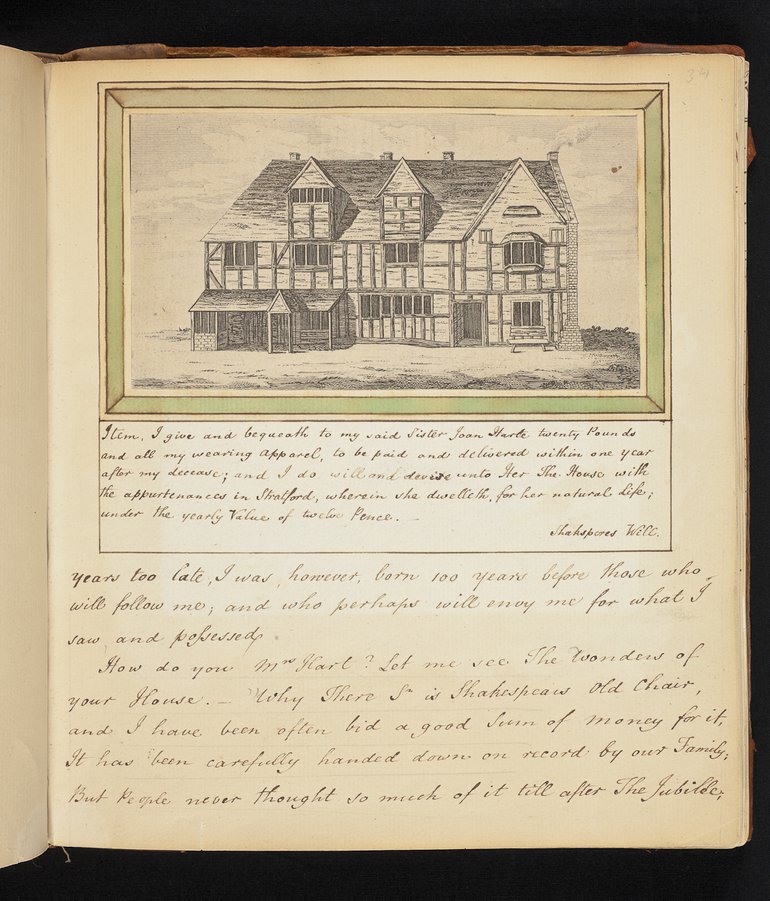 34
Item, I give and bequeath to my said Sister Joan Harte twenty Pounds
and all my wearing Apparel, to be paid and delivered within one year
after my decease; and I do will and devise unto Her The House with
the appurtenances in Stratford, wherein she dwelleth, for her natural Life;
under the yearly Value of twelve Pence. –
Shaksperes Will.
years too late, I was, however, born 100 years before those who
will follow me; and who perhaps will envy me for what I
saw and possessed
How do you Mrs Hart? Let me see The Wonders of
your House. – Why There Sr is Shakespears Old Chair,
and I have been often bid a good Sum of Money for it,
It has been carefully handed down on record by our Family;
But People never thought so much of it till after The Jubilee;